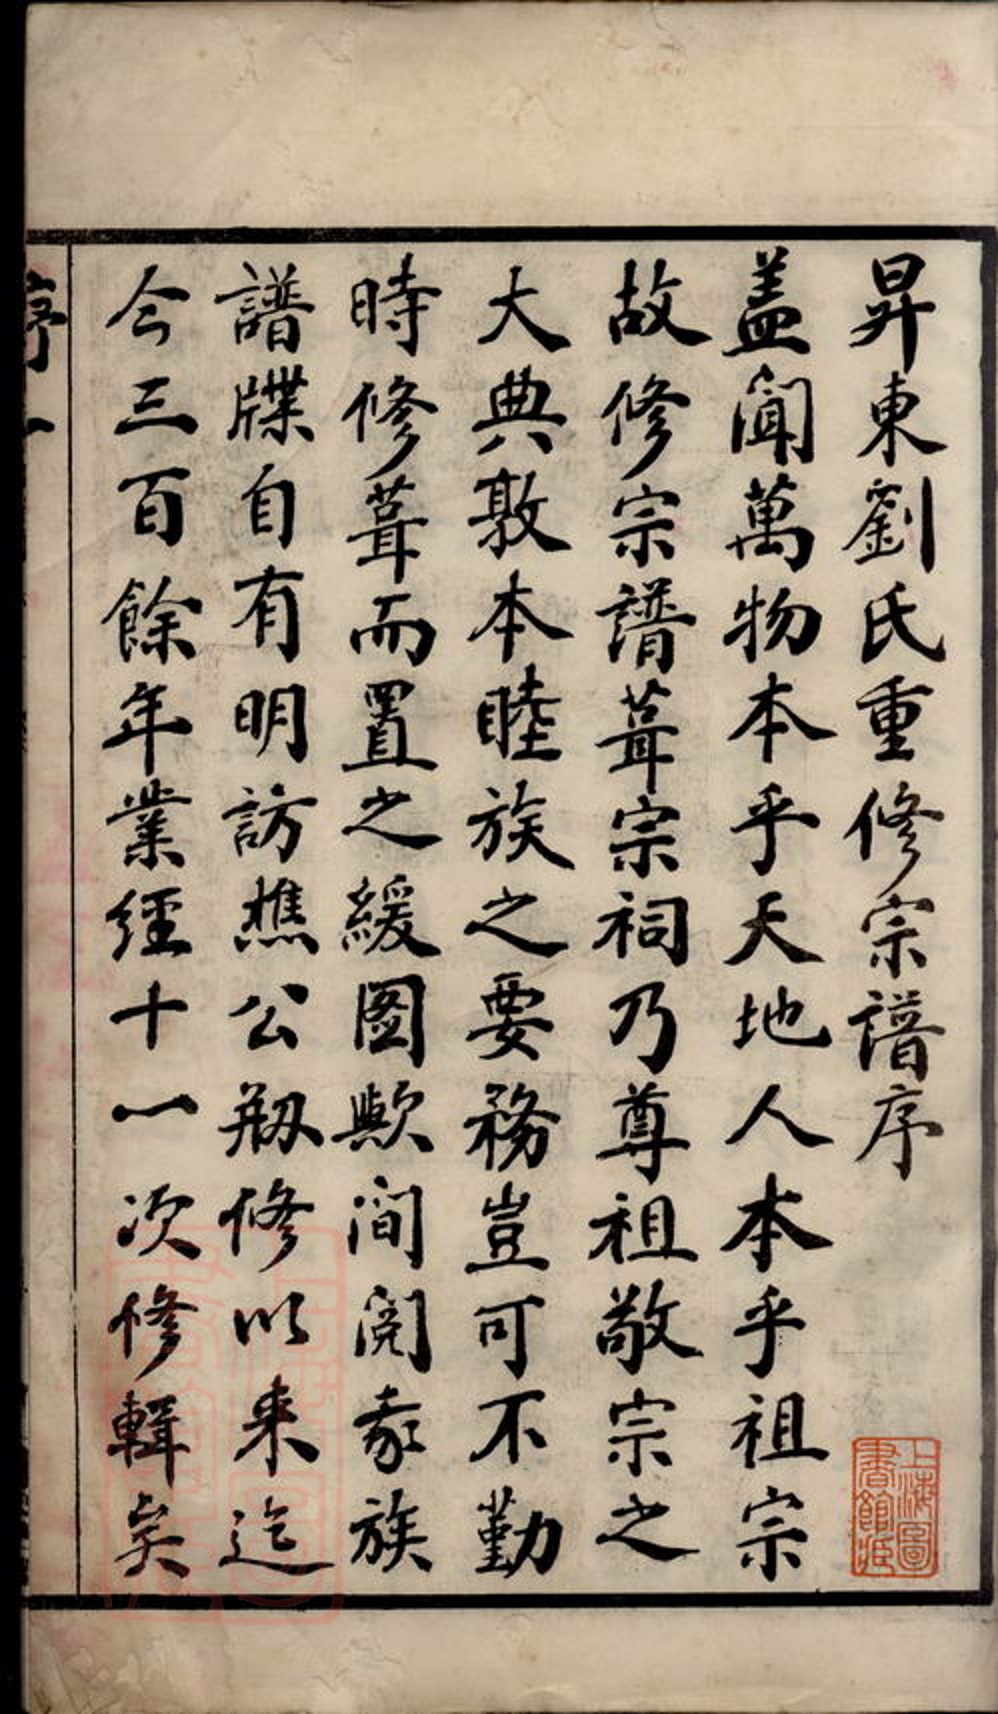 昇東劉氏重修宗譜序
盖聞萬物本乎天地人本乎祖宗
故修宗譜葺宗祠乃尊祖敬宗之
大典敦本睦族之要務豈可不勤
時修葺而置之緩圖歟澗閱彖族
譜牒自有明訪樵公剏修以来迄
今三百餘年業經十一次修輯矣
序
一
上海圖
書館藏